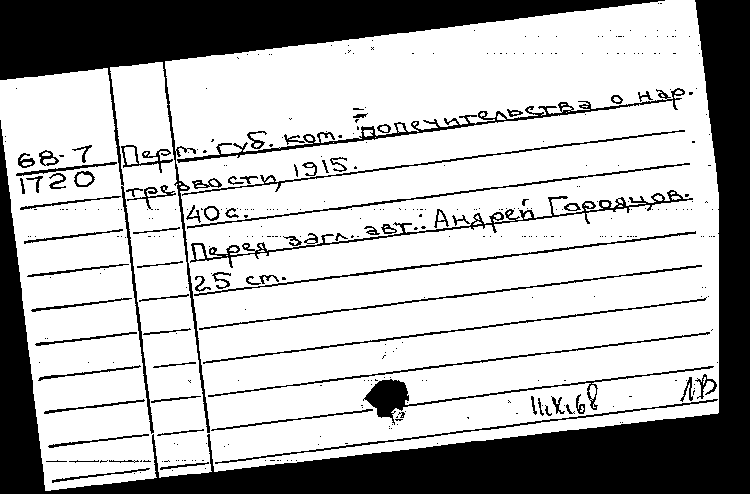 68-7
1720
Перм. губ. ком. попечительства о нар.
трезвости, 1915.
40с.
Перед загл. авт.: Андрей Городцов.
25 см.
11.X.68
ЛВ